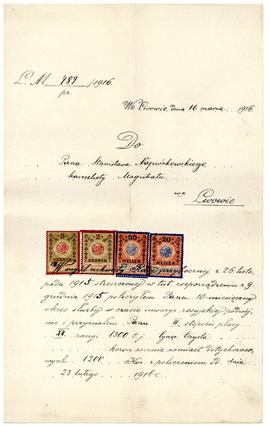 L. M 489 /1916
pr.
We Lwowie, dnia 16 marca 1916.
Do
Pana Stanisława
kancelisty Magistratu
we
Lwowie
KRONEN KRONEN HELLER HELLER
W myśl uchwały z 26 listo-
pada 1915 streszczonej w tut. rozporządzeniu z 9.
grudnia 1915 policzyłem Panu 10 miesięczny
okres służby w czasie inwazyi rosyjskiej podwój-
nie i przyznałem Panu II. stopień płacy
XI. rangi 1300
rocznie zamiast dotychczaso-
wych 1200 Kor z policzeniem od dnia
23 lutego 1916 r.